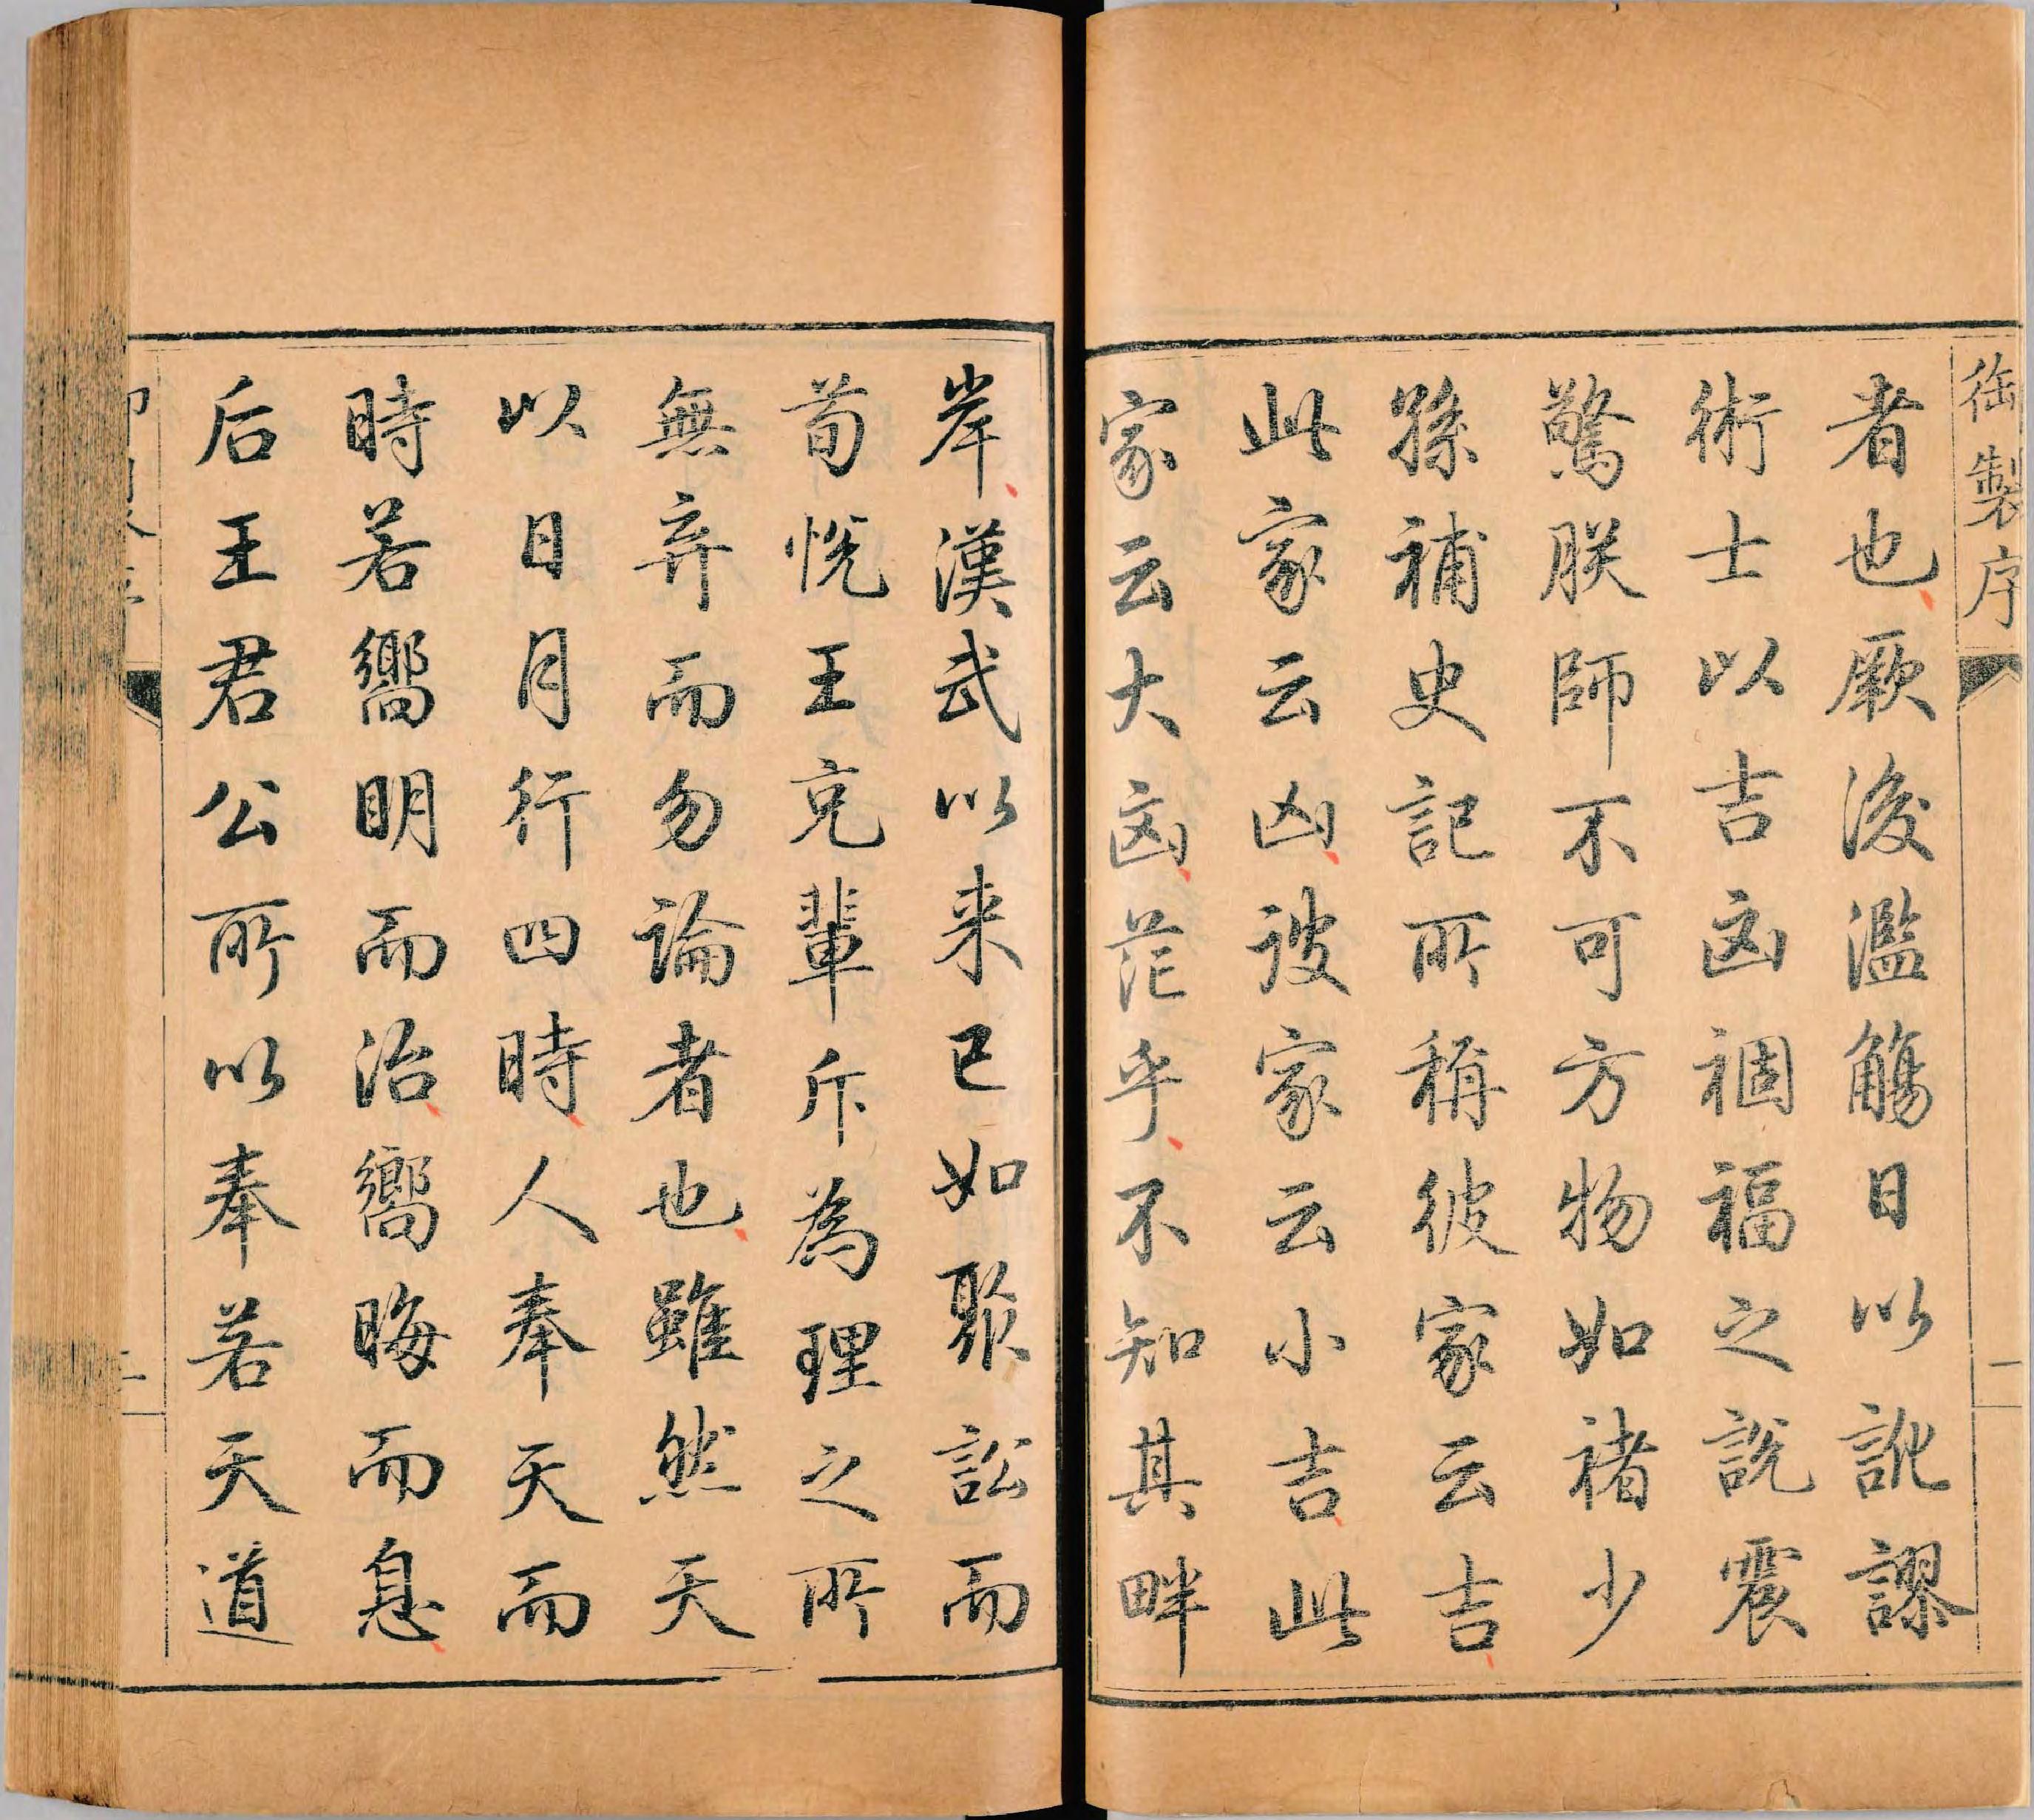 御製序
一
者也厥後濫觴日以訛謬
術士以吉凶禍福之說震
驚朕師不可方物如褚少
孫補史記所稱彼家云吉
此家云凶彼家云小吉此
家云大凶茫乎不知其畔
岸漢武以来已如聚訟而
荀悦王充輩斥為理之所
無弃而勿論者也雖然天
以日月行四時人奉天而
時若嚮明而治嚮晦而息
后王君公所以奉若天道